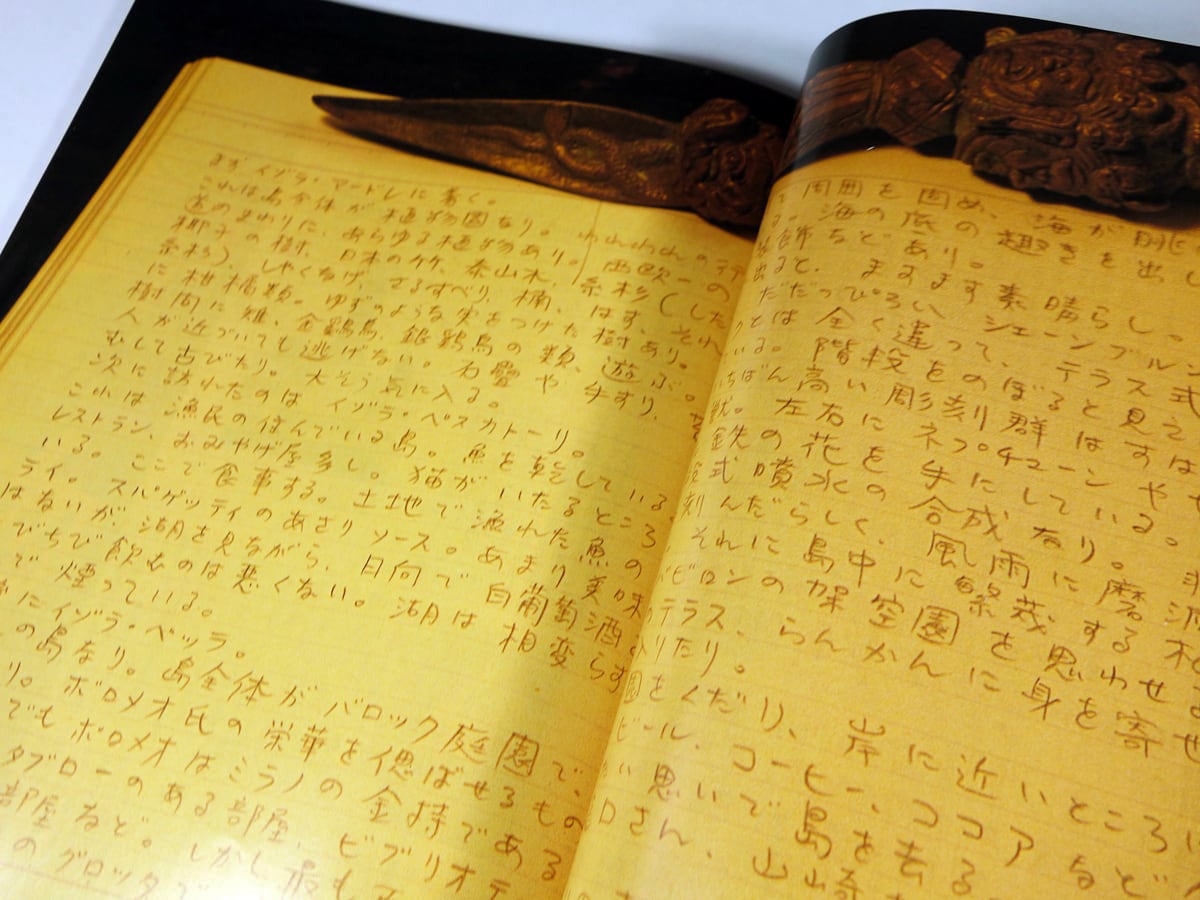 まずイゾラ・マードレに着く。
これは島全体が植物園なり。われわれのテ
道のまわりに、あらゆる植物あり。西欧一の
椰子の樹、日本の竹、泰山木、楠、糸杉(した
糸杉)、しゃくなげ、さるすべり、はす、それ
に柑橘類。ゆずのような実をつけた樹あり。
樹間に雉、金鶏鳥、銀鶏鳥の類、遊ぶ。
人が近づいても逃げない。石畳や手すり、
むして古びたり。大そう気に入る。
次に訪れたのはイゾラ・ペスカトーリ。
これは漁民の住んでいる島。魚を乾している
レストラン、おみやげ屋多し。猫がいたるところ
いる。ここで食事する。土地で漁れた魚の
ライ。スパゲッティのあさりソース。あまり美味
はないが、湖を見ながら、日向で白葡萄酒
びちび飲むのは悪くない。湖は相変らず
で煙っている。
にイゾラ・ベッラ。
の島なり。島全体がバロック庭園で、
り。ボロメオ氏の栄華を偲ばせるもの
でもボロメオはミラノの金持である
タブローのある部屋、ビブリオテ
部屋など。しかし最も
のグロッタで
て周囲を固め、海が眺
る。海の底の趣きを出し
装飾などあり。
出ると、ますます素晴らし。
だだっぴろいシェーンブルン
とは全く違って、テラス式
いる。階段をのぼると見え
いちばん高い彫刻群はすば
獣。左右にネプチューンや
鉄の花を手にしている。
式噴水の合成なり。
刻んだらしく、風雨に磨滅
それに島中に繁茂する
バビロンの架空園を思わせ
テラス、らんかんに身を寄せ
りたり。
園をくだり、岸に近いところ
ビール、コーヒー、ココアなど
い思いで島を去る
ロさん、山崎